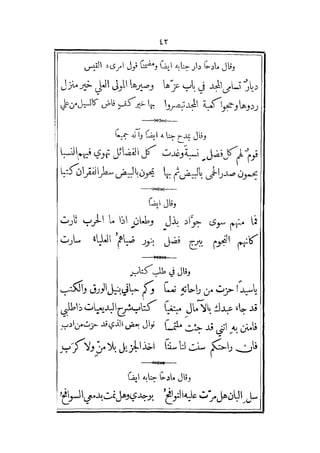 ٤٢
وقال مادحاً دار جنابه ايضاً ومضمناً قول امرىء القيس
ديارٌ تسامى المجد في باب عزّها وصيرها المولى العلي خير منزل
ردوها وحجوا كعبة المجد تبصروا بها خير كف فاض كالسيل من علي
وقال يمدح جنابه ايضاً وآله جميعاً
قومٌ لهم كل فضل نسبة وغدت كل الفضائل تهوي فيهم النسبا
يحمون صدر الحمى بالبيض ثم بها يمحون بالبيض سطر الفقر ان كتبا
وقال ايضاً
فما منهم سوى جوّاد بذلٍ وطعانٍ اذا ما الحرب ثارت
كانهم النجوم ببرج فضل بنور ضياهم العلياء سارت
وقال في طلب كتاب
يا سيداً حزت من راحاته نعماً وكم حباني بنيل الورق والكتب
قد جاء عبدك بالآمال مبتغياً كتاب شرح البديعيات ذا طلبي
فامنن به انني قد جئت ملتمساً نوال بعض الذي قد حزت من ادب
فان راحتكم سنت لنا سنناً اخذ الجزيل بلا منٍّ ولا كرب
وقال مادحاً جنابه ايضاً
سل البان هل مرّت عليه النوافح بوجدي وهل نمت بدمعي السوافح